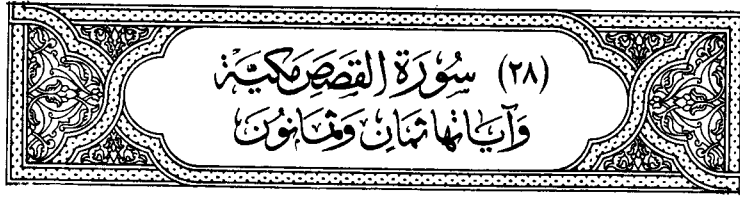 (٢٨) سُوْرَة القَصَصَ مكيَّة
وَآيَاتُهَا ثَمَانِ وَثَمَانُونَ